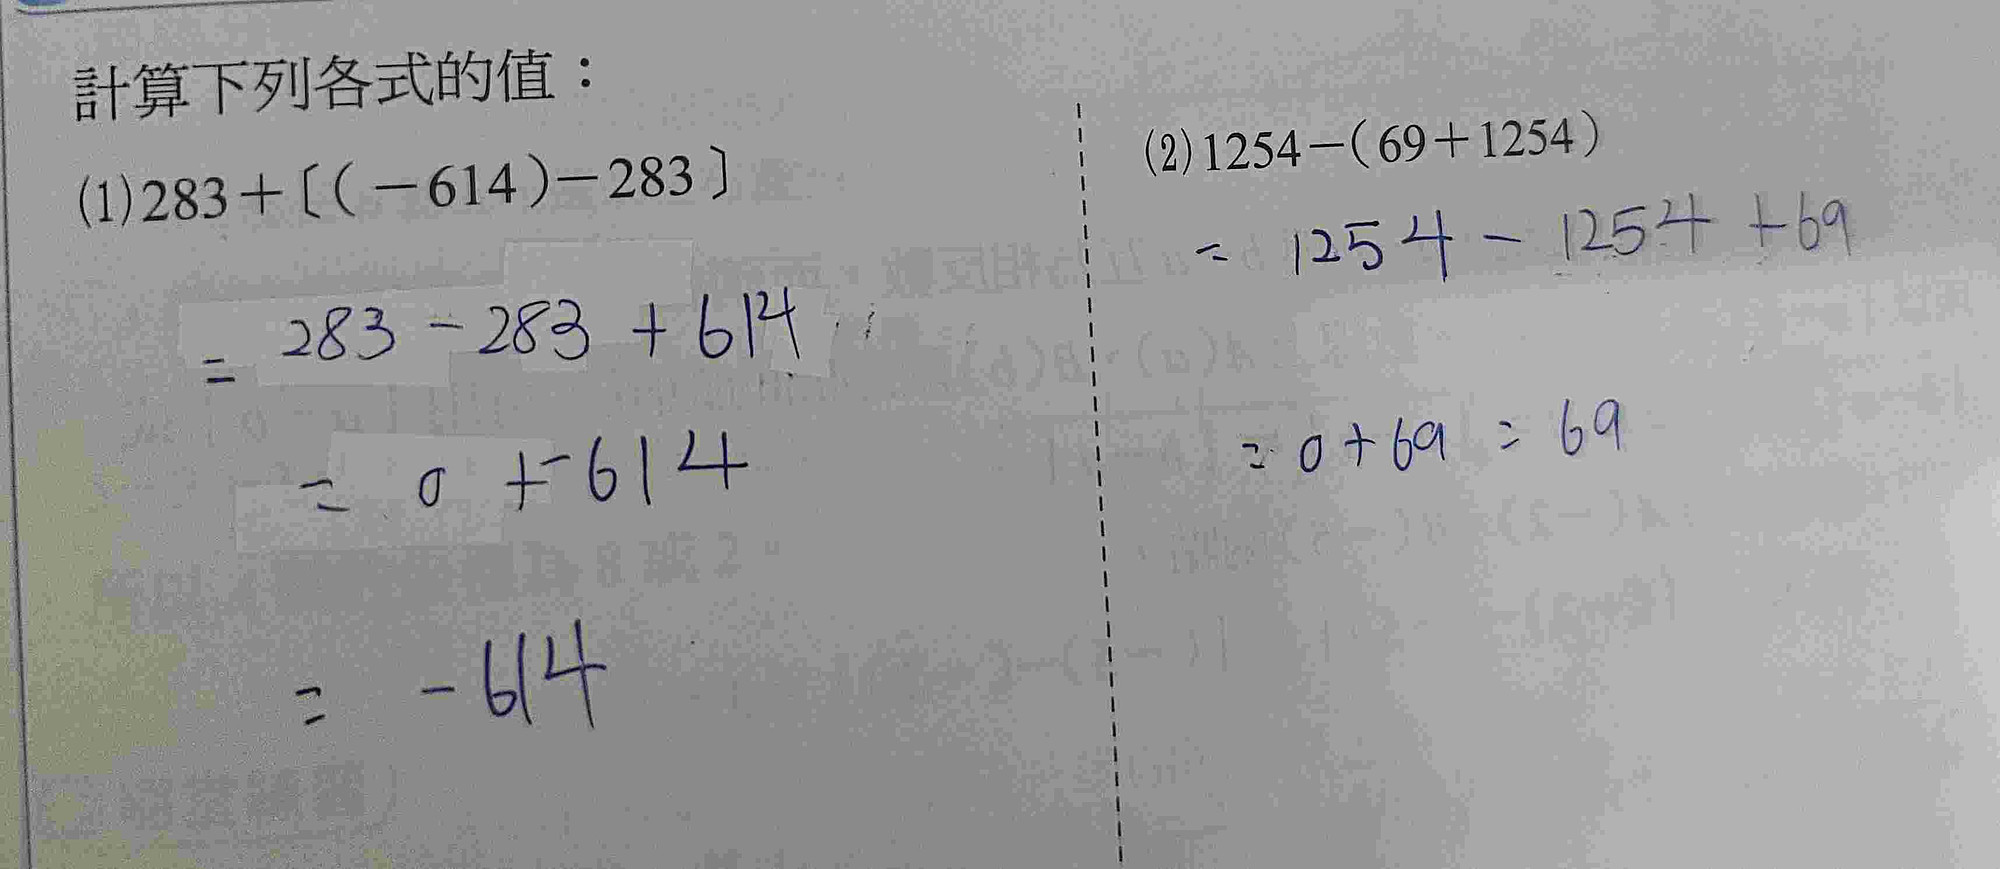 計算下列各式的值：
(1)283＋〔(－614)－283〕
= 283 - 283 + 614
= 0 + -614
= -614
(2)1254－(69＋1254)
= 1254 - 1254 + 69
= 0 + 69 = 69